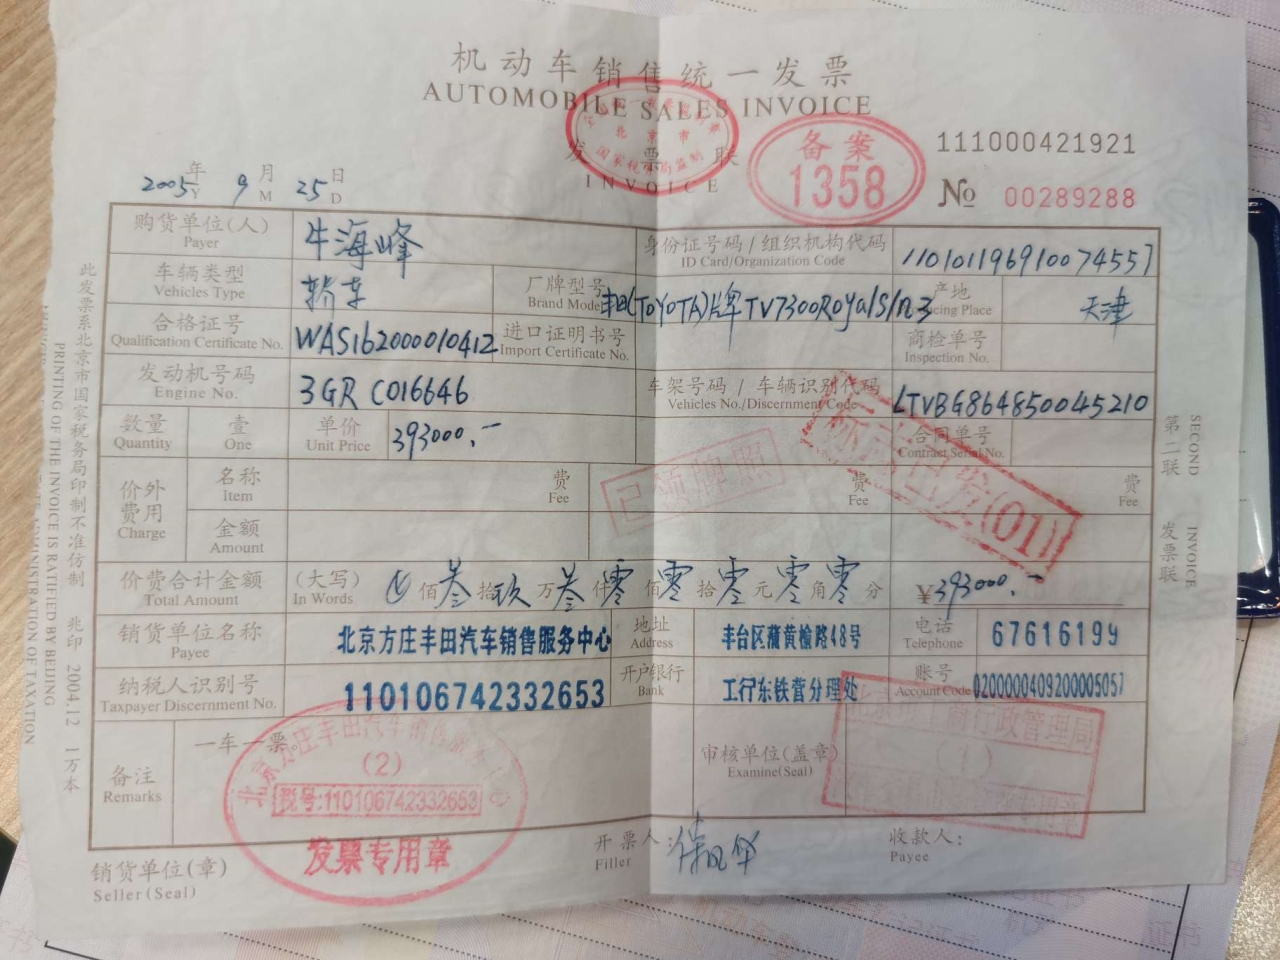 机动车销售统一发票
AUTOMOBILE SALES INVOICE
发票联
INVOICE
北京市
国家税务局监制
备案
1358
111000421921
№ 00289288
2005年 9月 25日
Y M D
购货单位(人) 牛海峰 身份证号码/组织机构代码 110101196910074557
Payer ID Card/Organization Code
车辆类型 轿车 厂牌型号 丰田(TOYOTA)牌TV7300Royals/n3 产地 天津
Vehicles Type Brand Mode Place
合格证号 WAS162000010412 进口证明书号 商检单号
Qualification Certificate No. Import Certificate No. Inspection No.
发动机号码 3GR C016646 车架号码/车辆识别代码 LTVBG864850045210
Engine No. Vehicles No./Discernment Code
数量 壹 单价 393000.- 合同单号
Quantity One Unit Price Contract Serial No.
已领牌照
已发(01)
价外费用 名称 费 费 费
Charge Item Fee Fee Fee
金额
Amount
价费合计金额 (大写) 佰叁拾玖万叁仟零佰零拾零元零角零分 ¥393000.-
Total Amount In Words
销货单位名称 北京方庄丰田汽车销售服务中心 地址 丰台区蒲黄榆路48号 电话 67616199
Payee Address Telephone
纳税人识别号 110106742332653 开户银行 工行东铁营分理处 账号 0200000409200005057
Taxpayer Discernment No. Bank Account Code
备注 一车一票 审核单位(盖章)
Remarks Examine(Seal)
北京方庄丰田汽车销售服务中心
(2)
税号:110106742332653
发票专用章
行政管理局
(1)
专用章
销货单位(章) 开票人: 收款人:
Seller(Seal) Filler Payee
此发票系北京市国家税务局印制不准仿制 兆印 2004.12 1万本
PRINTING OF THE INVOICE IS RATIFIED BY BEIJING
ADMINISTRATION OF TAXATION
第二联 发票联
SECOND INVOICE